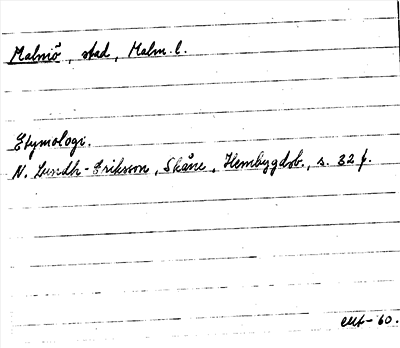 Malmö, stad, Malm. l.
Etymologi.
N. Lundh-Eriksson, Skåne, Hembygdsb., s. 32 f.
-60.